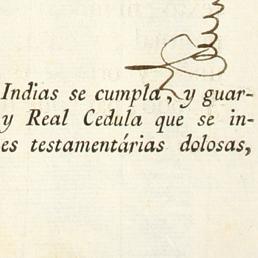 Indias se cumpla, y guar-
y Real Cedula que se in-
es testamentárias dolosas,